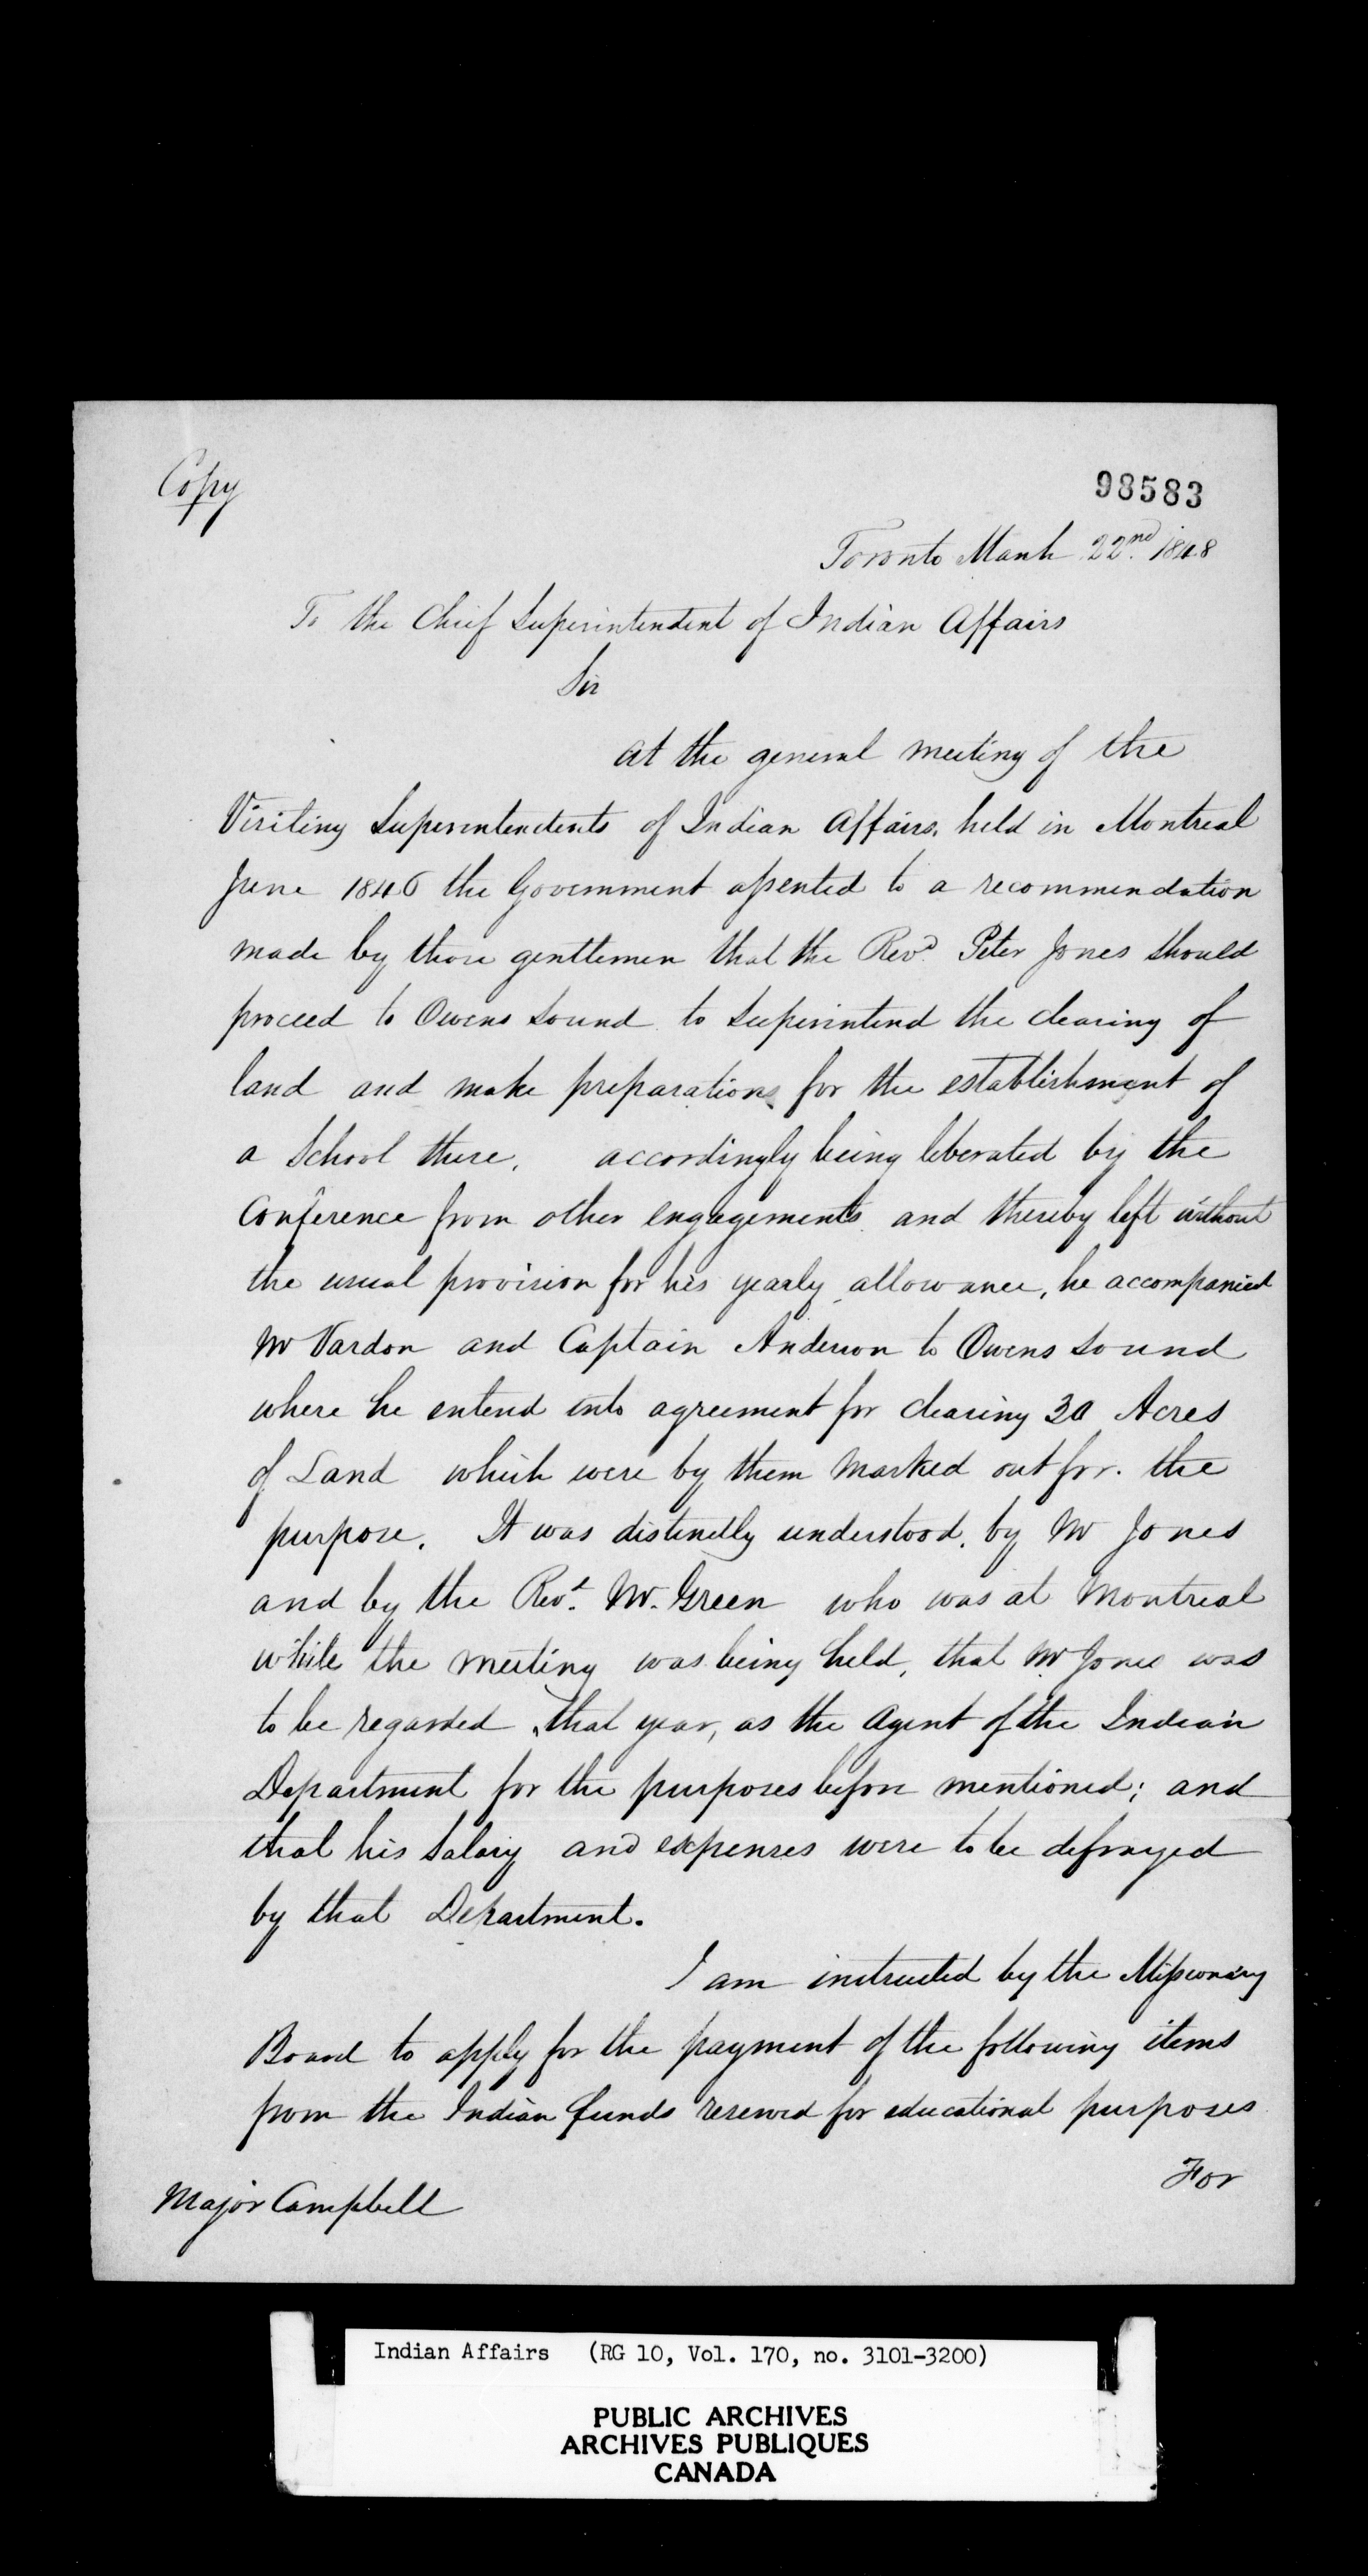 Copy
98583
Toronto March 22nd. 1848
To the Chief Superintendent of Indian Affairs
Sir
At the general meeting of the
Visiting Superintendents of Indian Affairs, held in Montreal
June 1846 the Government assented to a recommendation
made by those gentlemen that the Revd. Peter Jones should
proceed to Owens Sound to Superintend the clearing of
land and make preparations for the establishment of
a School there. accordingly being liberated by the
Conference from other engagements and thereby left without
the usual provision for his yearly allowance, he accompanied
Mr Vardon and Captain Anderson to Owens Sound
where he entered into agreement for clearing 30 Acres
of Land which were by them marked out for the
purpose. It was distinctly understood, by Mr Jones
and by the Revd. Mr. Green who was at Montreal
while the meeting was being held, that Mr Jones was
to be regarded, that year, as the Agent of the Indian
Department for the purposes before mentioned; and
that his Salary and expenses were to be defrayed
by that Department.
I am instructed by the Missionary
Board to apply for the payment of the following items
from the Indian funds reserved for educational purposes
For
Major Campbell
Indian Affairs (RG 10, Vol. 170, no. 3101-3200)
PUBLIC ARCHIVES
ARCHIVES PUBLIQUES
CANADA